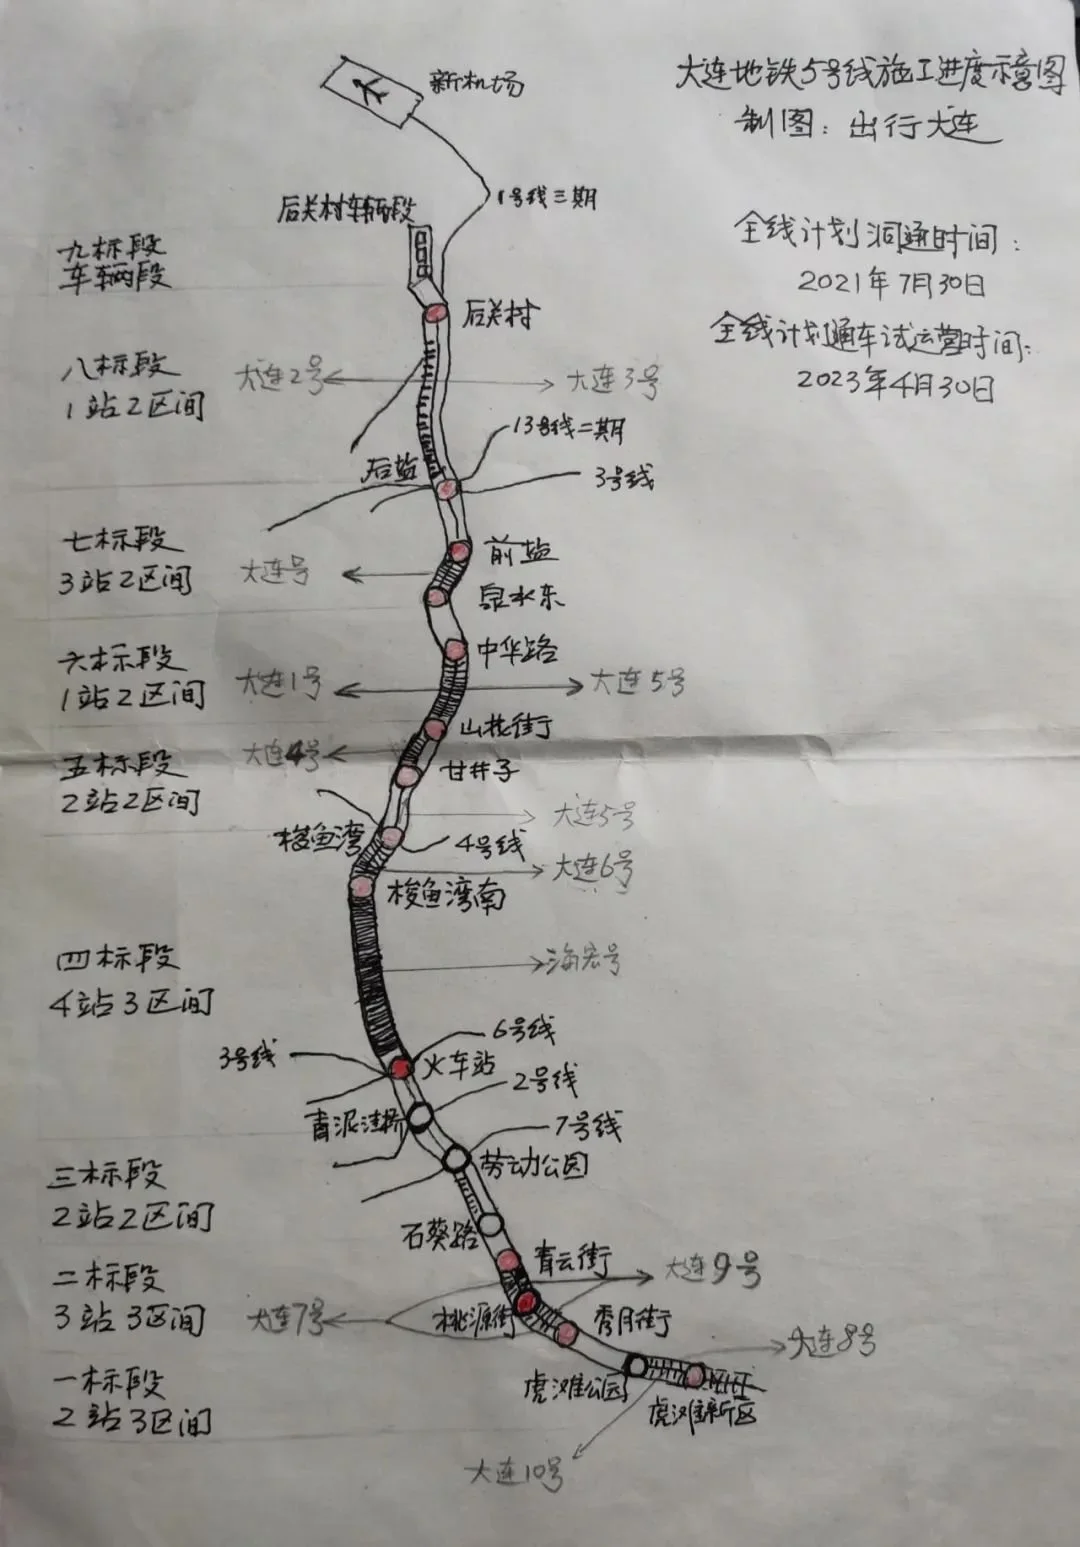 大连地铁5号线施工进度示意图
制图：出行大连
新机场
1号线三期
后关村车辆段
全线计划洞通时间：
2021年7月30日
全线计划通车试运营时间：
2023年4月30日
九标段
车辆段
后关村
八标段
1站2区间
大连2号
大连3号
13号线二期
后盐
3号线
七标段
3站2区间
大连号
前盐
泉水东
六标段
1站2区间
中华路
大连1号
大连5号
山花街
五标段
2站2区间
大连4号
甘井子
大连5号
梭鱼湾
4号线
大连6号
梭鱼湾南
四标段
4站3区间
海宏号
6号线
3号线
火车站
2号线
青泥洼桥
7号线
劳动公园
三标段
2站2区间
石葵路
青云街
二标段
3站3区间
大连9号
大连7号
桃源街
秀月街
大连8号
一标段
2站3区间
虎滩公园
虎滩新区
大连10号